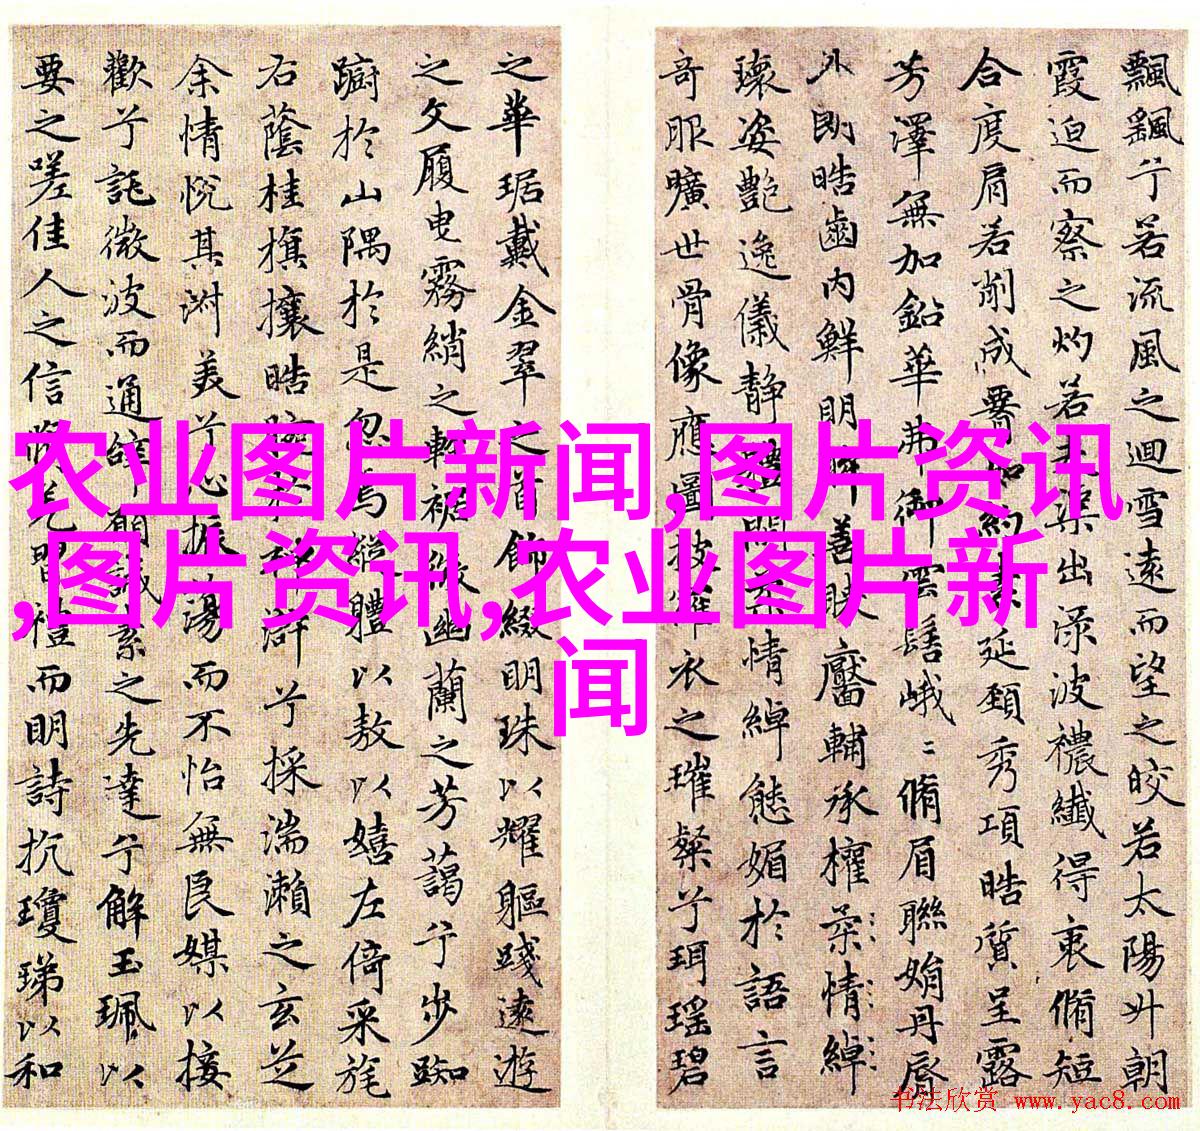 飄飖兮若流風之迴雪遠而望之皎若太陽升朝
霞迫而察之灼若芙蕖出渌波襛纖得衷脩短
合度肩若削成要如約素延頸秀項皓質呈露
芳澤無加鉛華弗御雲髻峨〻脩眉聯娟丹脣
外朗皓齒内鮮明眸善睞靨輔承權柔情綽
瓌姿艶逸儀静體閑柔情綽態媚於語言
奇服曠世骨像應圖披羅衣之璀粲兮珥瑶碧
之華琚戴金翠之首飾綴明珠以耀軀踐遠遊
之文履曳霧綃之輕裾微幽蘭之芳藹兮步踟
躕於山隅於是忽焉縱體以敖以嬉左倚采旄
右蔭桂旗攘皓腕於神滸兮採湍瀨之玄芝
余情悦其淑美兮心振蕩而不怡無良媒以接
歡兮託微波而通辭願誠素之先達兮解玉珮以
要之嗟佳人之信脩羌習禮而明詩抗瓊珶以和
农业图片新闻,图片资讯
,图片资讯,农业图片新
闻
书法欣赏 www.yac8.com